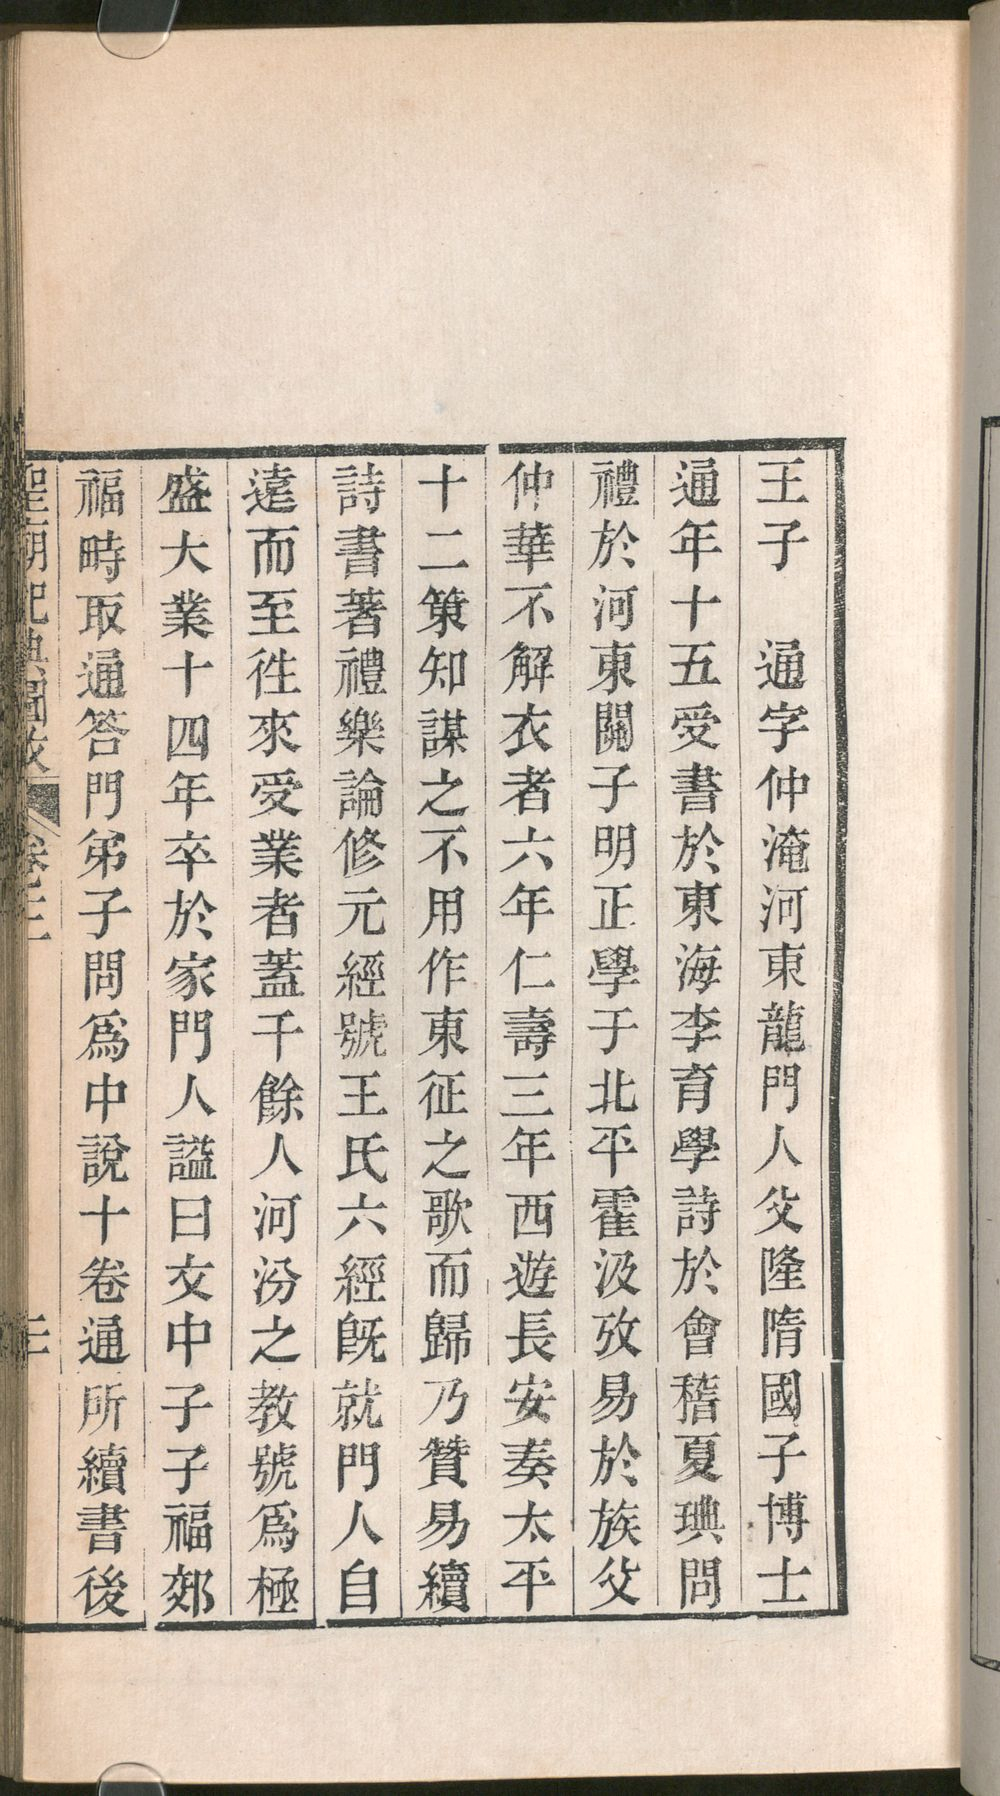 王子　通字仲淹河東龍門人父隆隋國子博士
通年十五受書於東海李育學詩於會稽夏琠問
禮於河東關子明正學于北平霍汲攷易於族父
仲華不解衣者六年仁壽三年西遊長安奏太平
十二策知謀之不用作東征之歌而歸乃贊易續
詩書著禮樂論修元經號王氏六經旣就門人自
遠而至徃來受業者蓋千餘人河汾之教號爲極
盛大業十四年卒於家門人謚曰文中子子福郊
福畤取通答門弟子問爲中說十卷通所續書後
聖廟祀典圖攷　卷三　三